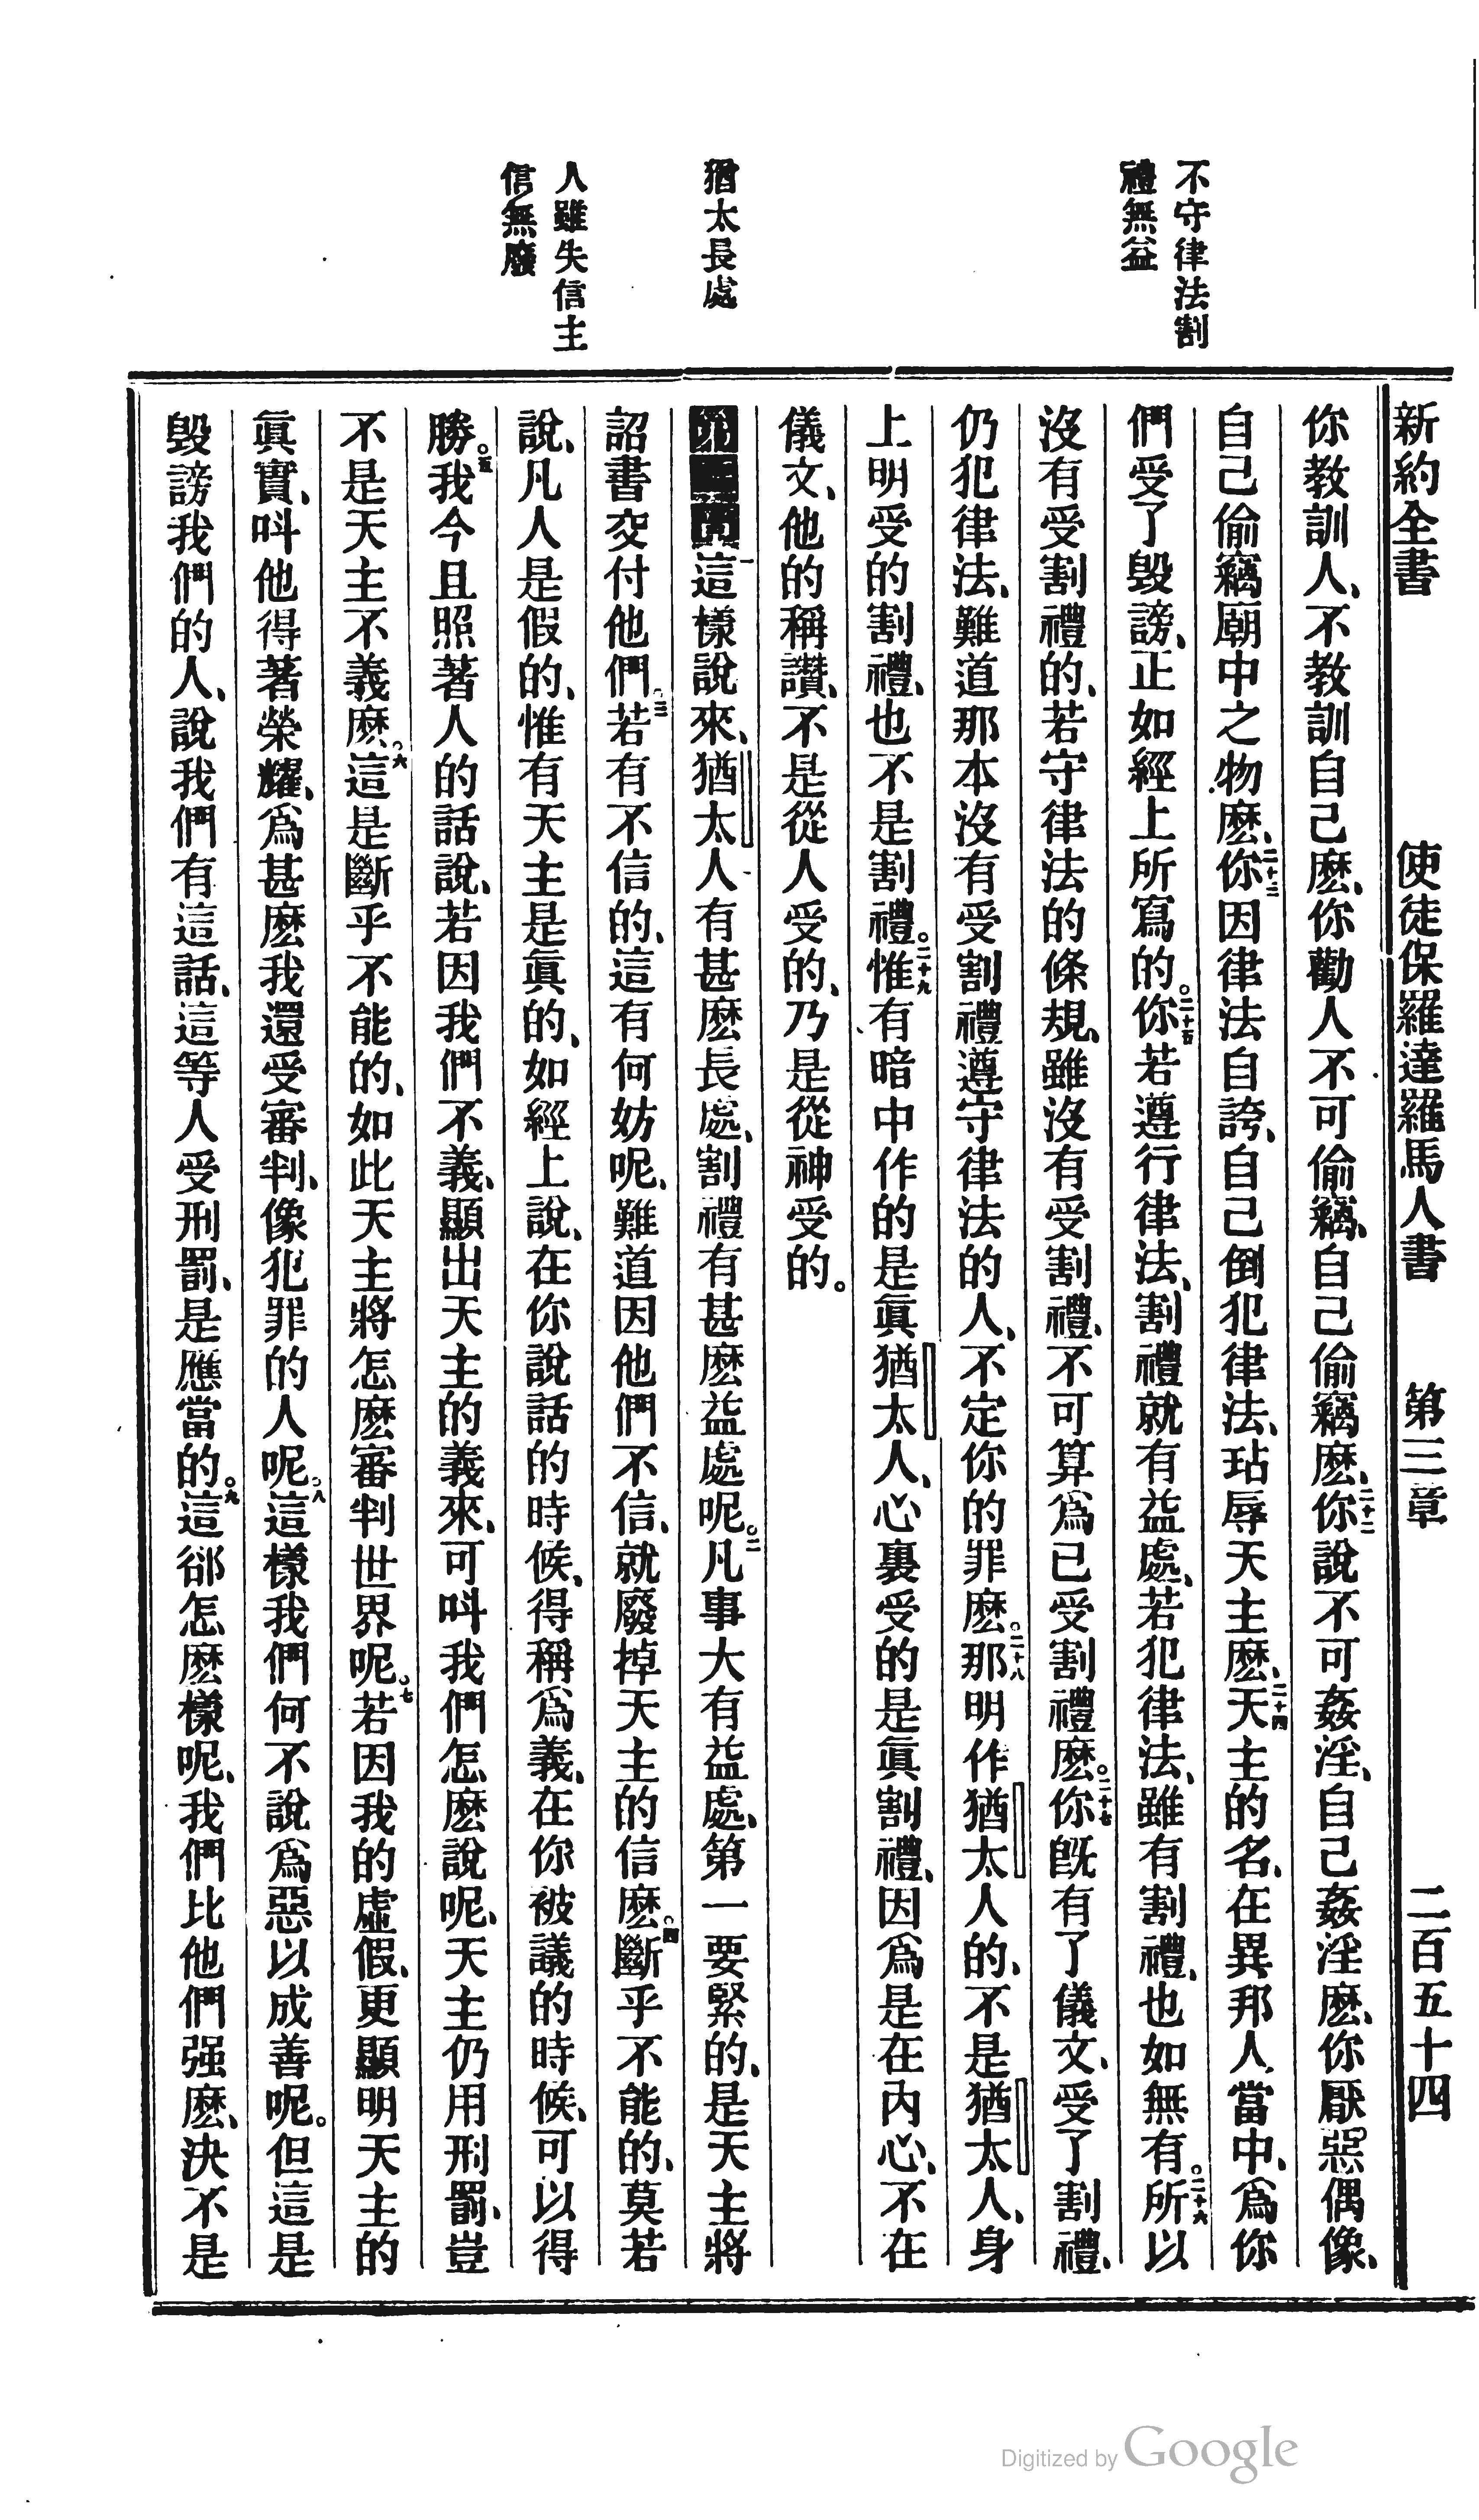 新約全書　使徒保羅達羅馬人書　第三章　二百五十四
不守律法割
禮無益
猶太長處
人雖失信主
信無廢
你教訓人、不教訓自己麽、你勸人不可偷竊、自己偷竊麽、二十二你說不可姦淫、自己姦淫麽、你厭惡偶像、
自己偷竊廟中之物麽、二十三你因律法自誇、自己倒犯律法、玷辱天主麽、二十四天主的名、在異邦人當中、爲你
們受了毀謗、正如經上所寫的。二十五你若遵行律法、割禮就有益處、若犯律法、雖有割禮、也如無有。二十六所以
沒有受割禮的、若守律法的條規、雖沒有受割禮、不可算爲已受割禮麽。二十七你旣有了儀文、受了割禮、
仍犯律法、難道那本沒有受割禮遵守律法的人、不定你的罪麽。二十八那明作猶太人的、不是猶太人、身
上明受的割禮、也不是割禮。二十九惟有暗中作的是眞猶太人、心裏受的是眞割禮、因爲是在內心、不在
儀文、他的稱讚、不是從人受的、乃是從神受的。
一這樣說來、猶太人有甚麽長處、割禮有甚麽益處呢。二凡事大有益處、第一要緊的、是天主將
詔書交付他們。三若有不信的、這有何妨呢、難道因他們不信、就廢掉天主的信麽。四斷乎不能的、莫若
說、凡人是假的、惟有天主是眞的、如經上說、在你說話的時候、得稱爲義、在你被議的時候、可以得
勝。五我今且照著人的話說、若因我們不義、顯出天主的義來、可呌我們怎麽說呢、天主仍用刑罰、豈
不是天主不義麽。六這是斷乎不能的、如此天主將怎麽審判世界呢。七若因我的虛假、更顯明天主的
眞實、呌他得著榮耀、爲甚麽我還受審判、像犯罪的人呢。八這樣我們何不說爲惡以成善呢。但這是
毀謗我們的人、說我們有這話、這等人受刑罰、是應當的。九這郤怎麽樣呢、我們比他們强麽、決不是
Digitized by Google